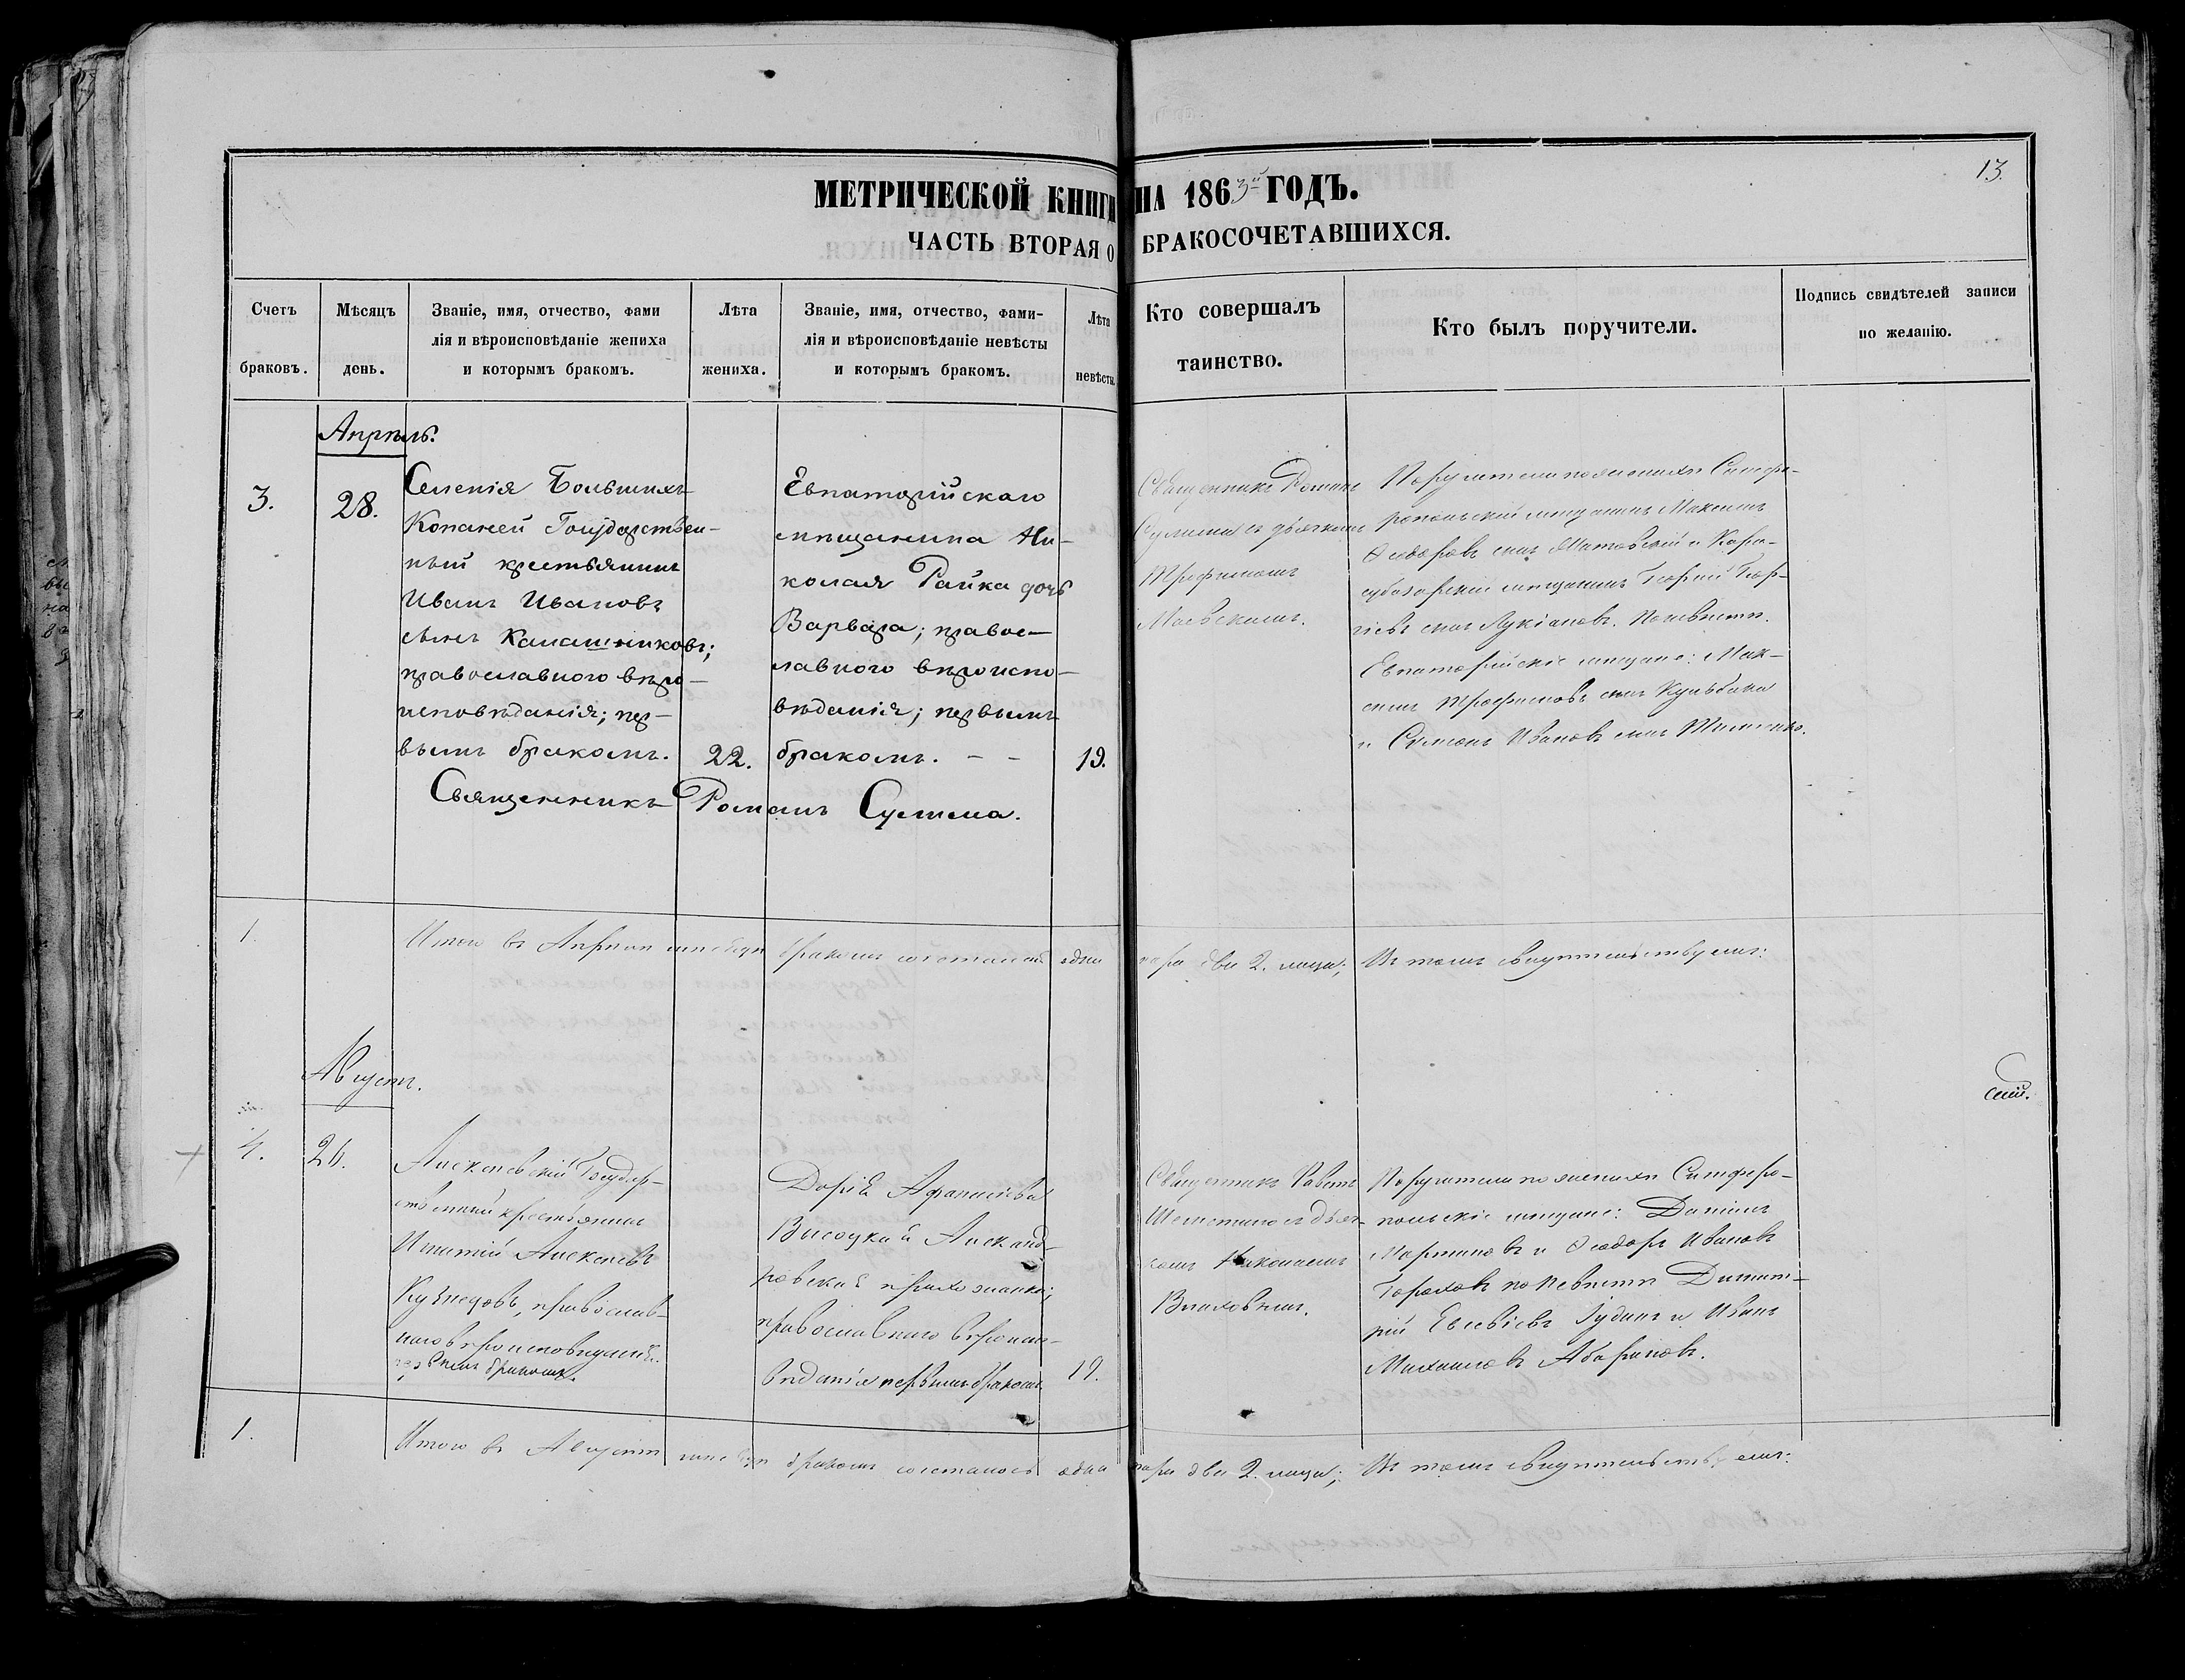 13.
МЕТРИЧЕСКОЙ КНИГИ НА 1863й ГОДЪ.
ЧАСТЬ ВТОРАЯ О БРАКОСОЧЕТАВШИХСЯ.
Счетъ браковъ.
Мѣсяцъ день.
Званіе, имя, отчество, фами
лія и вѣроисповѣданіе жениха
и которымъ бракомъ.
Лѣта жениха.
Званіе, имя, отчество, фами-
лія и вѣроисповѣданіе невѣсты
и которымъ бракомъ.
Лѣта невѣсты.
Кто совершалъ
таинство.
Кто былъ поручители.
Подпись свидѣтелей записи
по желанію.
Апрѣль.
3.
28.
Селенія Большихъ
Копаней Государствен-
ный крестьянинъ
Иванъ Ивановъ
сынъ Калашниковъ;
православного вѣро-
исповѣданія; пер-
вымъ бракомъ.
22.
Евпаторійскаго
мѣщанина Ни-
колая Райка дочь
Варвара; правос-
лавного вѣроиспо-
вѣданія; первымъ
бракомъ. - -
19.
Священникъ Романъ
съ дьячкомъ
Трофимомъ
Маевскимъ.
Поручители по женихѣ Симфе-
ропольскій мѣщанинъ Максимъ
Ѳедоровъ сынъ и Кара-
субазарскій мѣщанинъ Георгій Геор-
гіевъ сынъ Лукіановъ. По невѣстѣ.
Евпаторійскіе мѣщане: Мак-
симъ Трофимовъ сынъ Кульбака
и Семионъ Ивановъ сынъ
Священникъ Романъ
1.
Итого въ Апрѣлѣ мѣсяцѣ бракомъ сочеталось одна пара двѣ 2. лица; Въ томъ свидѣтельствуемъ:
Августъ.
4.
26.
Алексѣевскій Государ-
ственный крестьянинъ
Игнатій Алексѣевъ
Кузнецовъ, православ-
наго вѣроисповѣданія.
первымъ бракомъ.
Дарія Афанасіева
Висоцкая Александ-
ровская прихожанка;
православнаго вѣроиспо-
вѣданія первымъ бракомъ
19.
Священникъ Павелъ
съ дьяч-
комъ Николаемъ
Поручители по женихѣ Симферо-
польскіе мѣщане: Даніилъ
Мартиновъ и Ѳеодоръ Ивановъ
Гороховъ по невѣстѣ Димит-
рій Евсевіевъ Гудимъ и Иванъ
Михаиловъ
1.
Итого въ Августѣ мѣсяцѣ бракомъ сочеталось одна пара двѣ 2. лица; Въ томъ свидѣтельствуемъ: